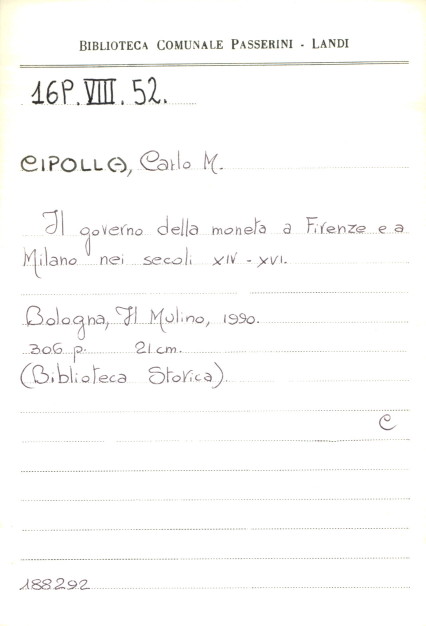 BIBLIOTECA COMUNALE PASSERINI - LANDI
16P. VIII. 52.
CIPOLLA, Carlo M.
Il governo della moneta a Firenze e a
Milano nei secoli XIV - XVI.
Bologna, Il Mulino, 1990.
306 p. 21 cm.
(Biblioteca Storica).
C
188292